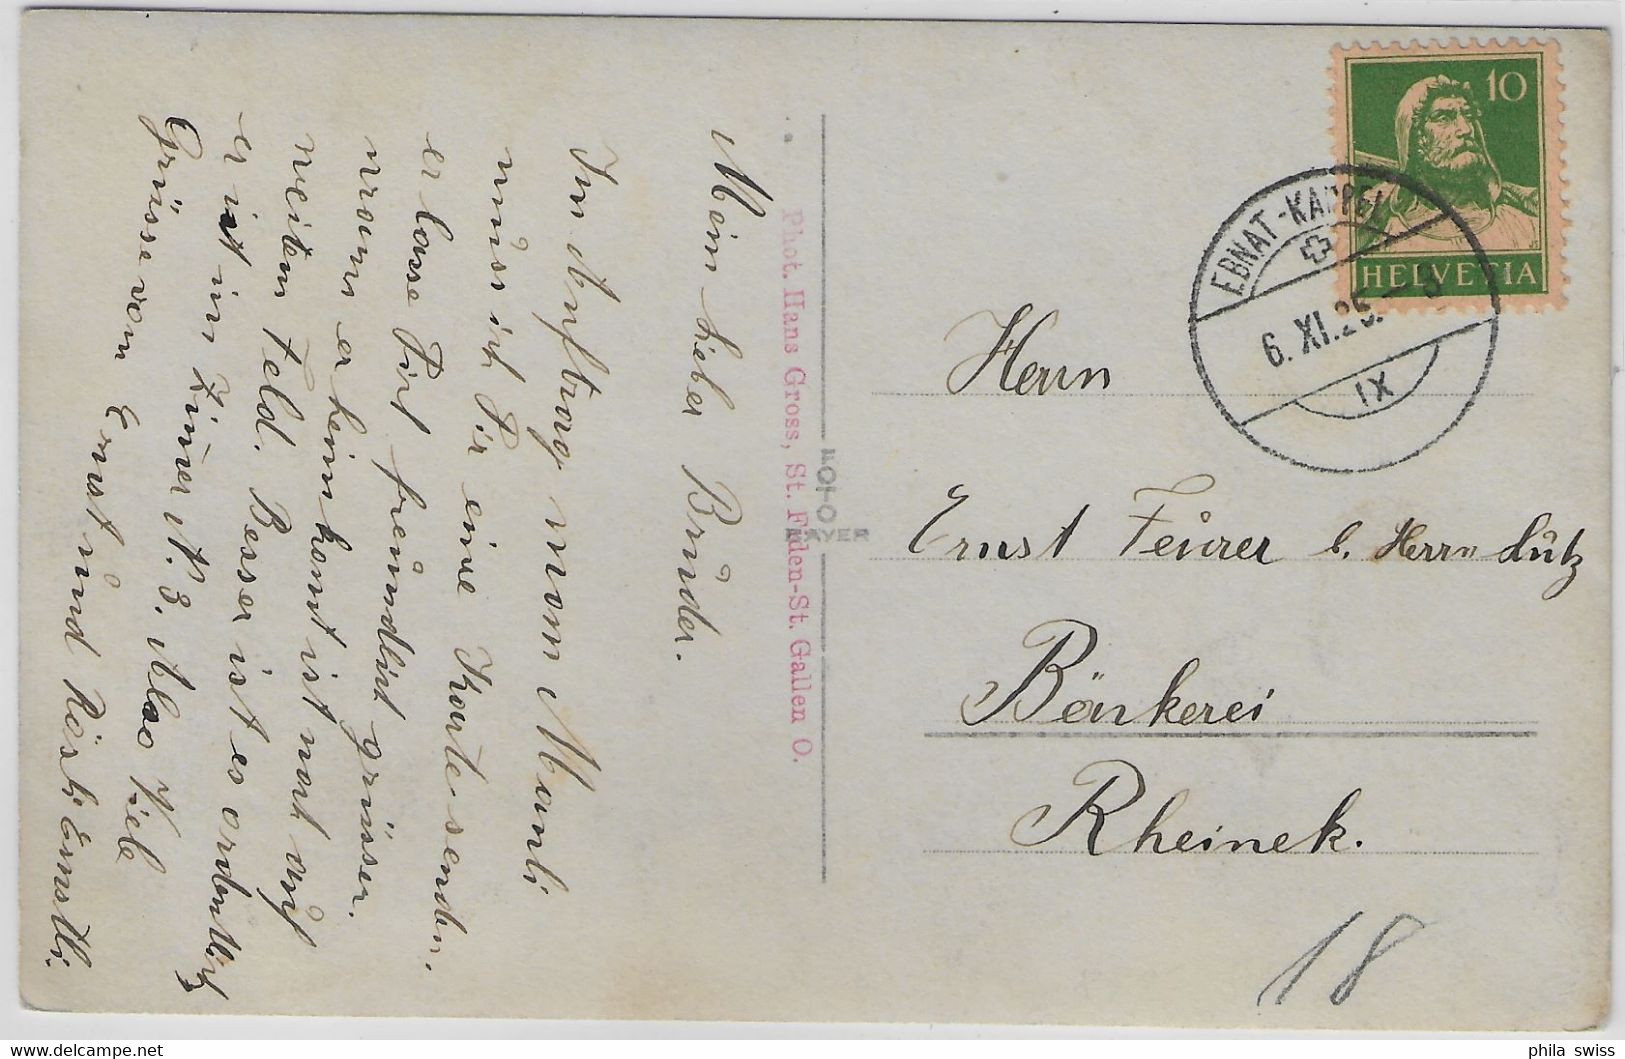 Mein Lieber Bruder.
Im Auftrag vom Manli
muss ich Dir eine Karte senden.
er lasse Dirt freundlich grüsser.
wrom er heim komt ist noch auf
weitem Feld. Besser ist es ordentlich
er ist im Zimer N. 3. Also Viele
Grüsse von Ernst und Rösli Ernstli.
Phot. Hans Gross, St. Fiden-St. Gallen O.
BAYER
10
HELVETIA
EBNAT-KAPPEL
6. XI. 25. - 8
IX
Herrn
Ernst Feurer b. Herrn Lutz
Bäckerei
Rheinek.
18
phila swiss
www.delcampe.net